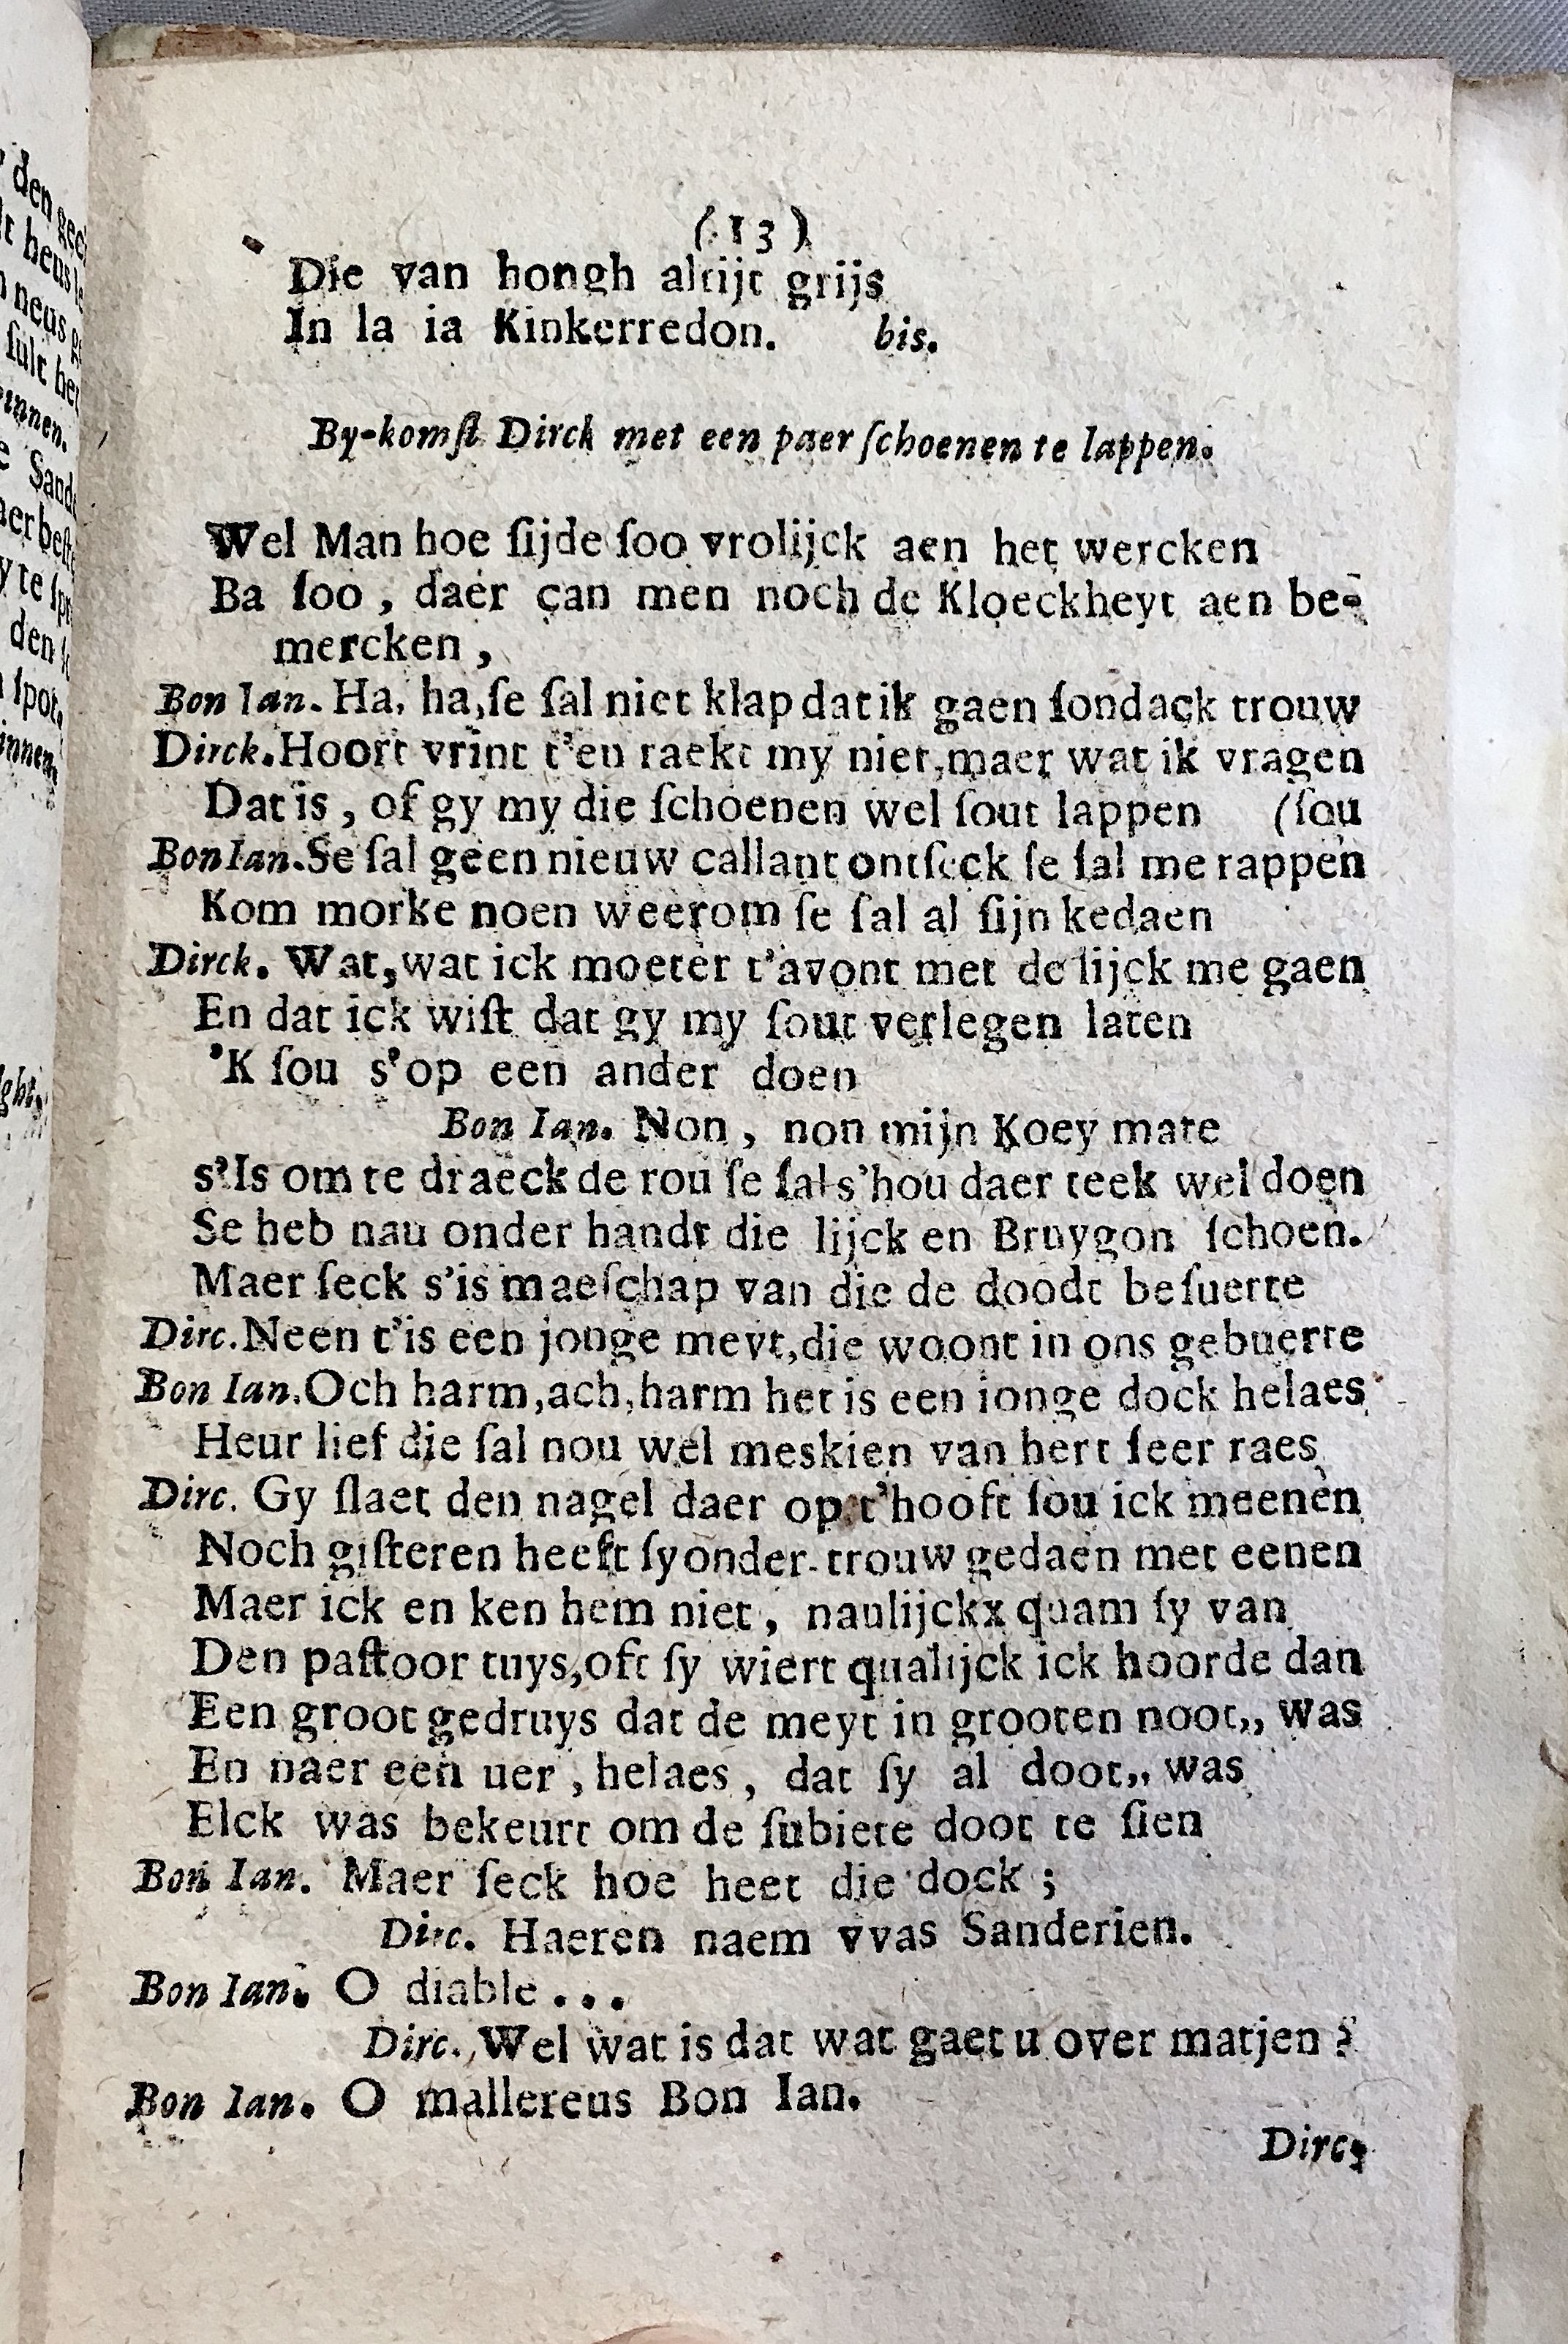 ( 13 )
Die van hongh altijt grijs
In la ia Kinkerredon. bis.
By-komſt Dirck met een paer ſchoenen te lappen.
Wel Man hoe ſijde ſoo vrolijck aen het wercken
Ba ſoo, daer can men noch de Kloeckheyt aen be-
mercken,
Bon Ian. Ha, ha, ſe ſal niet klap dat ik gaen ſondack trouw
Dirck. Hoort vrint t'en raekt my niet, maer wat ik vragen
Dat is, of gy my die ſchoenen wel ſout lappen (ſou
Bon Ian. Se ſal geen nieuw callant ontſeck ſe ſal me rappen
Kom morke noen weerom ſe ſal al ſijn kedaen
Dirck. Wat, wat ick moeter t'avont met de lijck me gaen
En dat ick wiſt dat gy my ſout verlegen laten
'K ſou s'op een ander doen
Bon Ian. Non, non mijn Koey mate
s'Is om te draeck de rou ſe ſal s'hou daer teek wel doen
Se heb nau onder handt die lijck en Bruygon ſchoen.
Maer ſeck s'is maeſchap van die de doodt beſuerte
Dirc. Neen t'is een jonge meyt, die woont in ons gebuerte
Bon Ian. Och harm, ach, harm het is een ionge dock helaes
Heur lief die ſal nou wel meskien van hert ſeer raes
Dirc. Gy ſlaet den nagel daer op t'hooft ſou ick meenen
Noch giſteren heeft ſy onder-trouw gedaen met eenen
Maer ick en ken hem niet, naulijckx quam ſy van
Den paſtoor tuys, oft ſy wiert qualijck ick hoorde dan
Een groot gedruys dat de meyt in grooten noot,, was
En naer een uer, helaes, dat ſy al doot,, was
Elck was bekeurt om de ſubiete doot te ſien
Bon Ian. Maer ſeck hoe heet die dock;
Dirc. Haeren naem vvas Sanderien.
Bon Ian. O diable...
Dirc. Wel wat is dat wat gaet u over matjen?
Bon Ian. O mallereus Bon Ian.
Dirc,